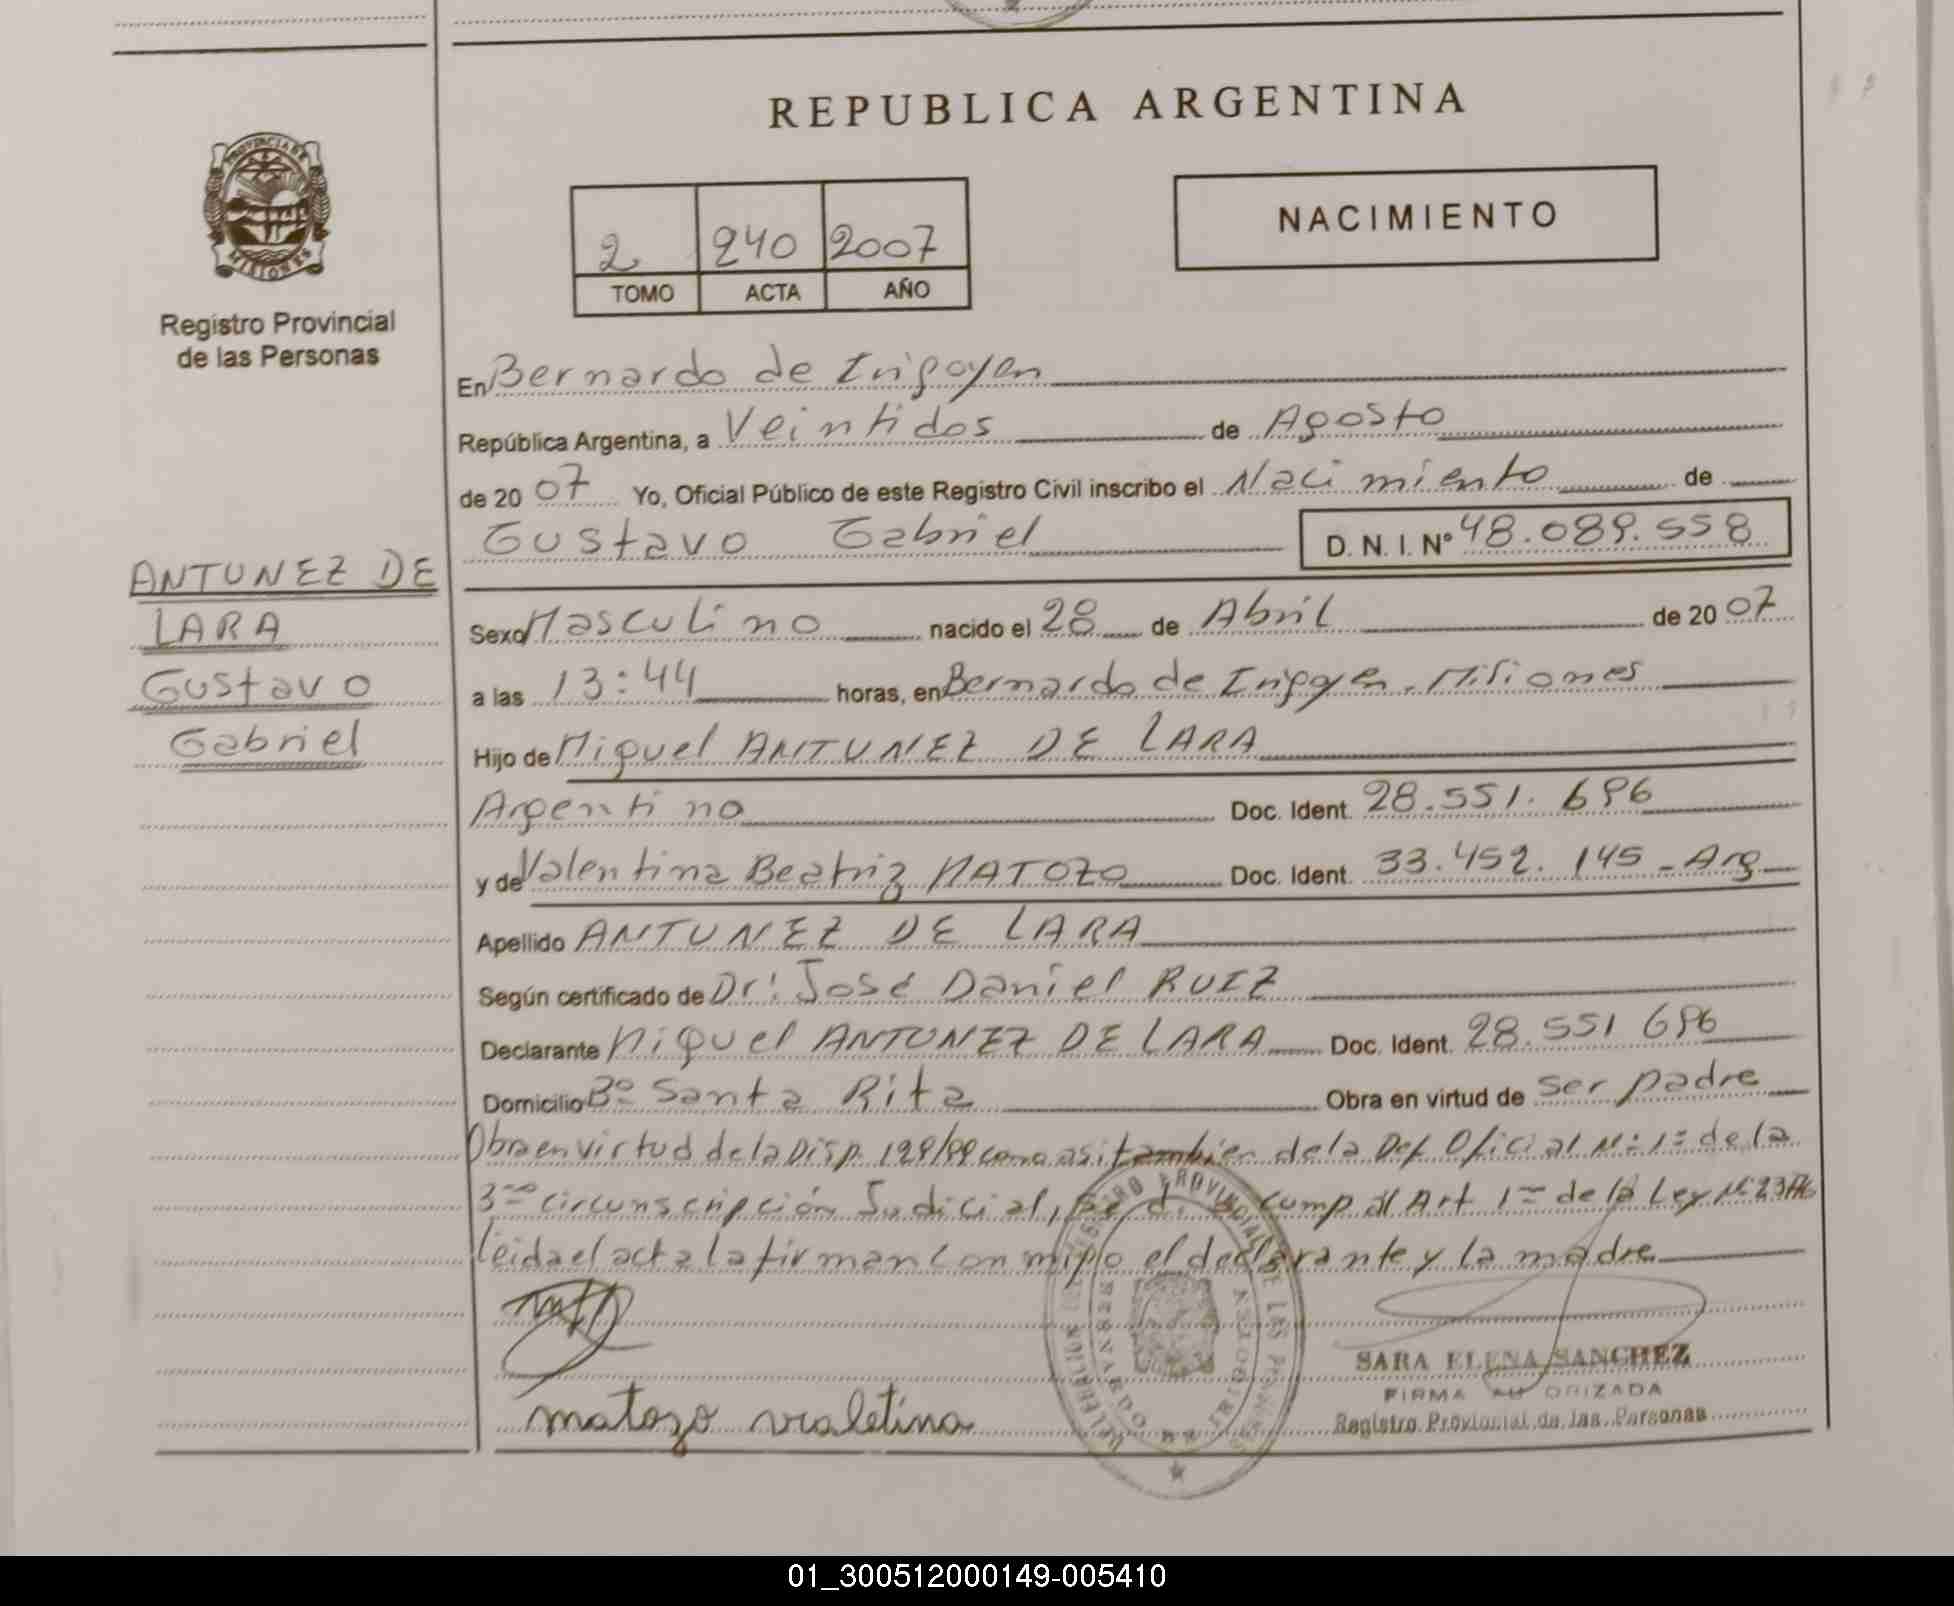 REPUBLICA ARGENTINA
PROVINCIA DE MISIONES
Registro Provincial
de las Personas
2 240 2007
TOMO ACTA AÑO
NACIMIENTO
En Bernardo de Irigoyen
República Argentina, a Veintidos de Agosto
de 2007 Yo, Oficial Público de este Registro Civil inscribo el Nacimiento de
Gustavo Gabriel D.N.I. Nº 48.089.558
ANTUNEZ DE
LARA
Gustavo
Gabriel
Sexo Masculino nacido el 28 de Abril de 2007
a las 13:44 horas, en Bernardo de Irigoyen. Misiones
Hijo de Miguel ANTUNEZ DE LARA
Argentino Doc. Ident. 28.551.696
y de Valentina Beatriz MATOZO Doc. Ident. 33.452.145 - Arg
Apellido ANTUNEZ DE LARA
Según certificado de Dr: José Daniel RUIZ
Declarante Miguel ANTUNEZ DE LARA Doc. Ident. 28.551 696
Domicilio Bº Santa Rita Obra en virtud de ser padre
Obra en virtud de la Disp. como asi tambien de la Def Oficial Nº 1º de la
3ra circunscripción Judicial, cump al Art 1º de la Ley Nº
leida el acta la firman con migo el declarante y la madre
matozo valetina
SARA ELENA SANCHEZ
FIRMA AUTORIZADA
Registro Provincial de las Personas
01_300512000149-005410